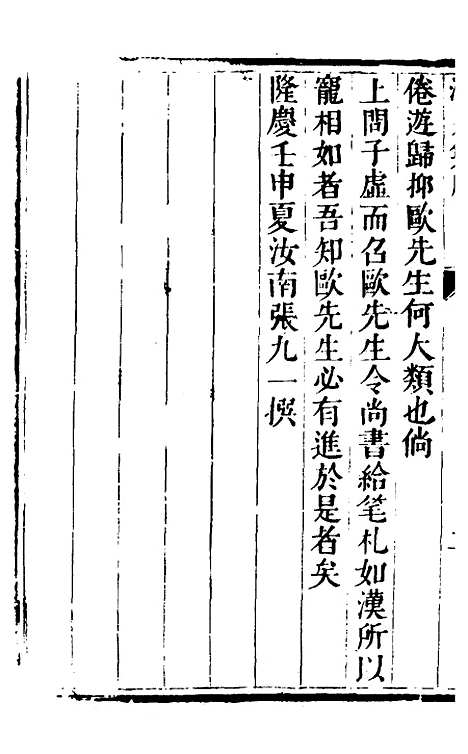 倦遊歸抑歐先生何大類也倘
上問子虛而召歐先生令尚書給笔札如漢所以
寵相如者吾知歐先生必有進於是者矣
隆慶壬申夏汝南張九一撰